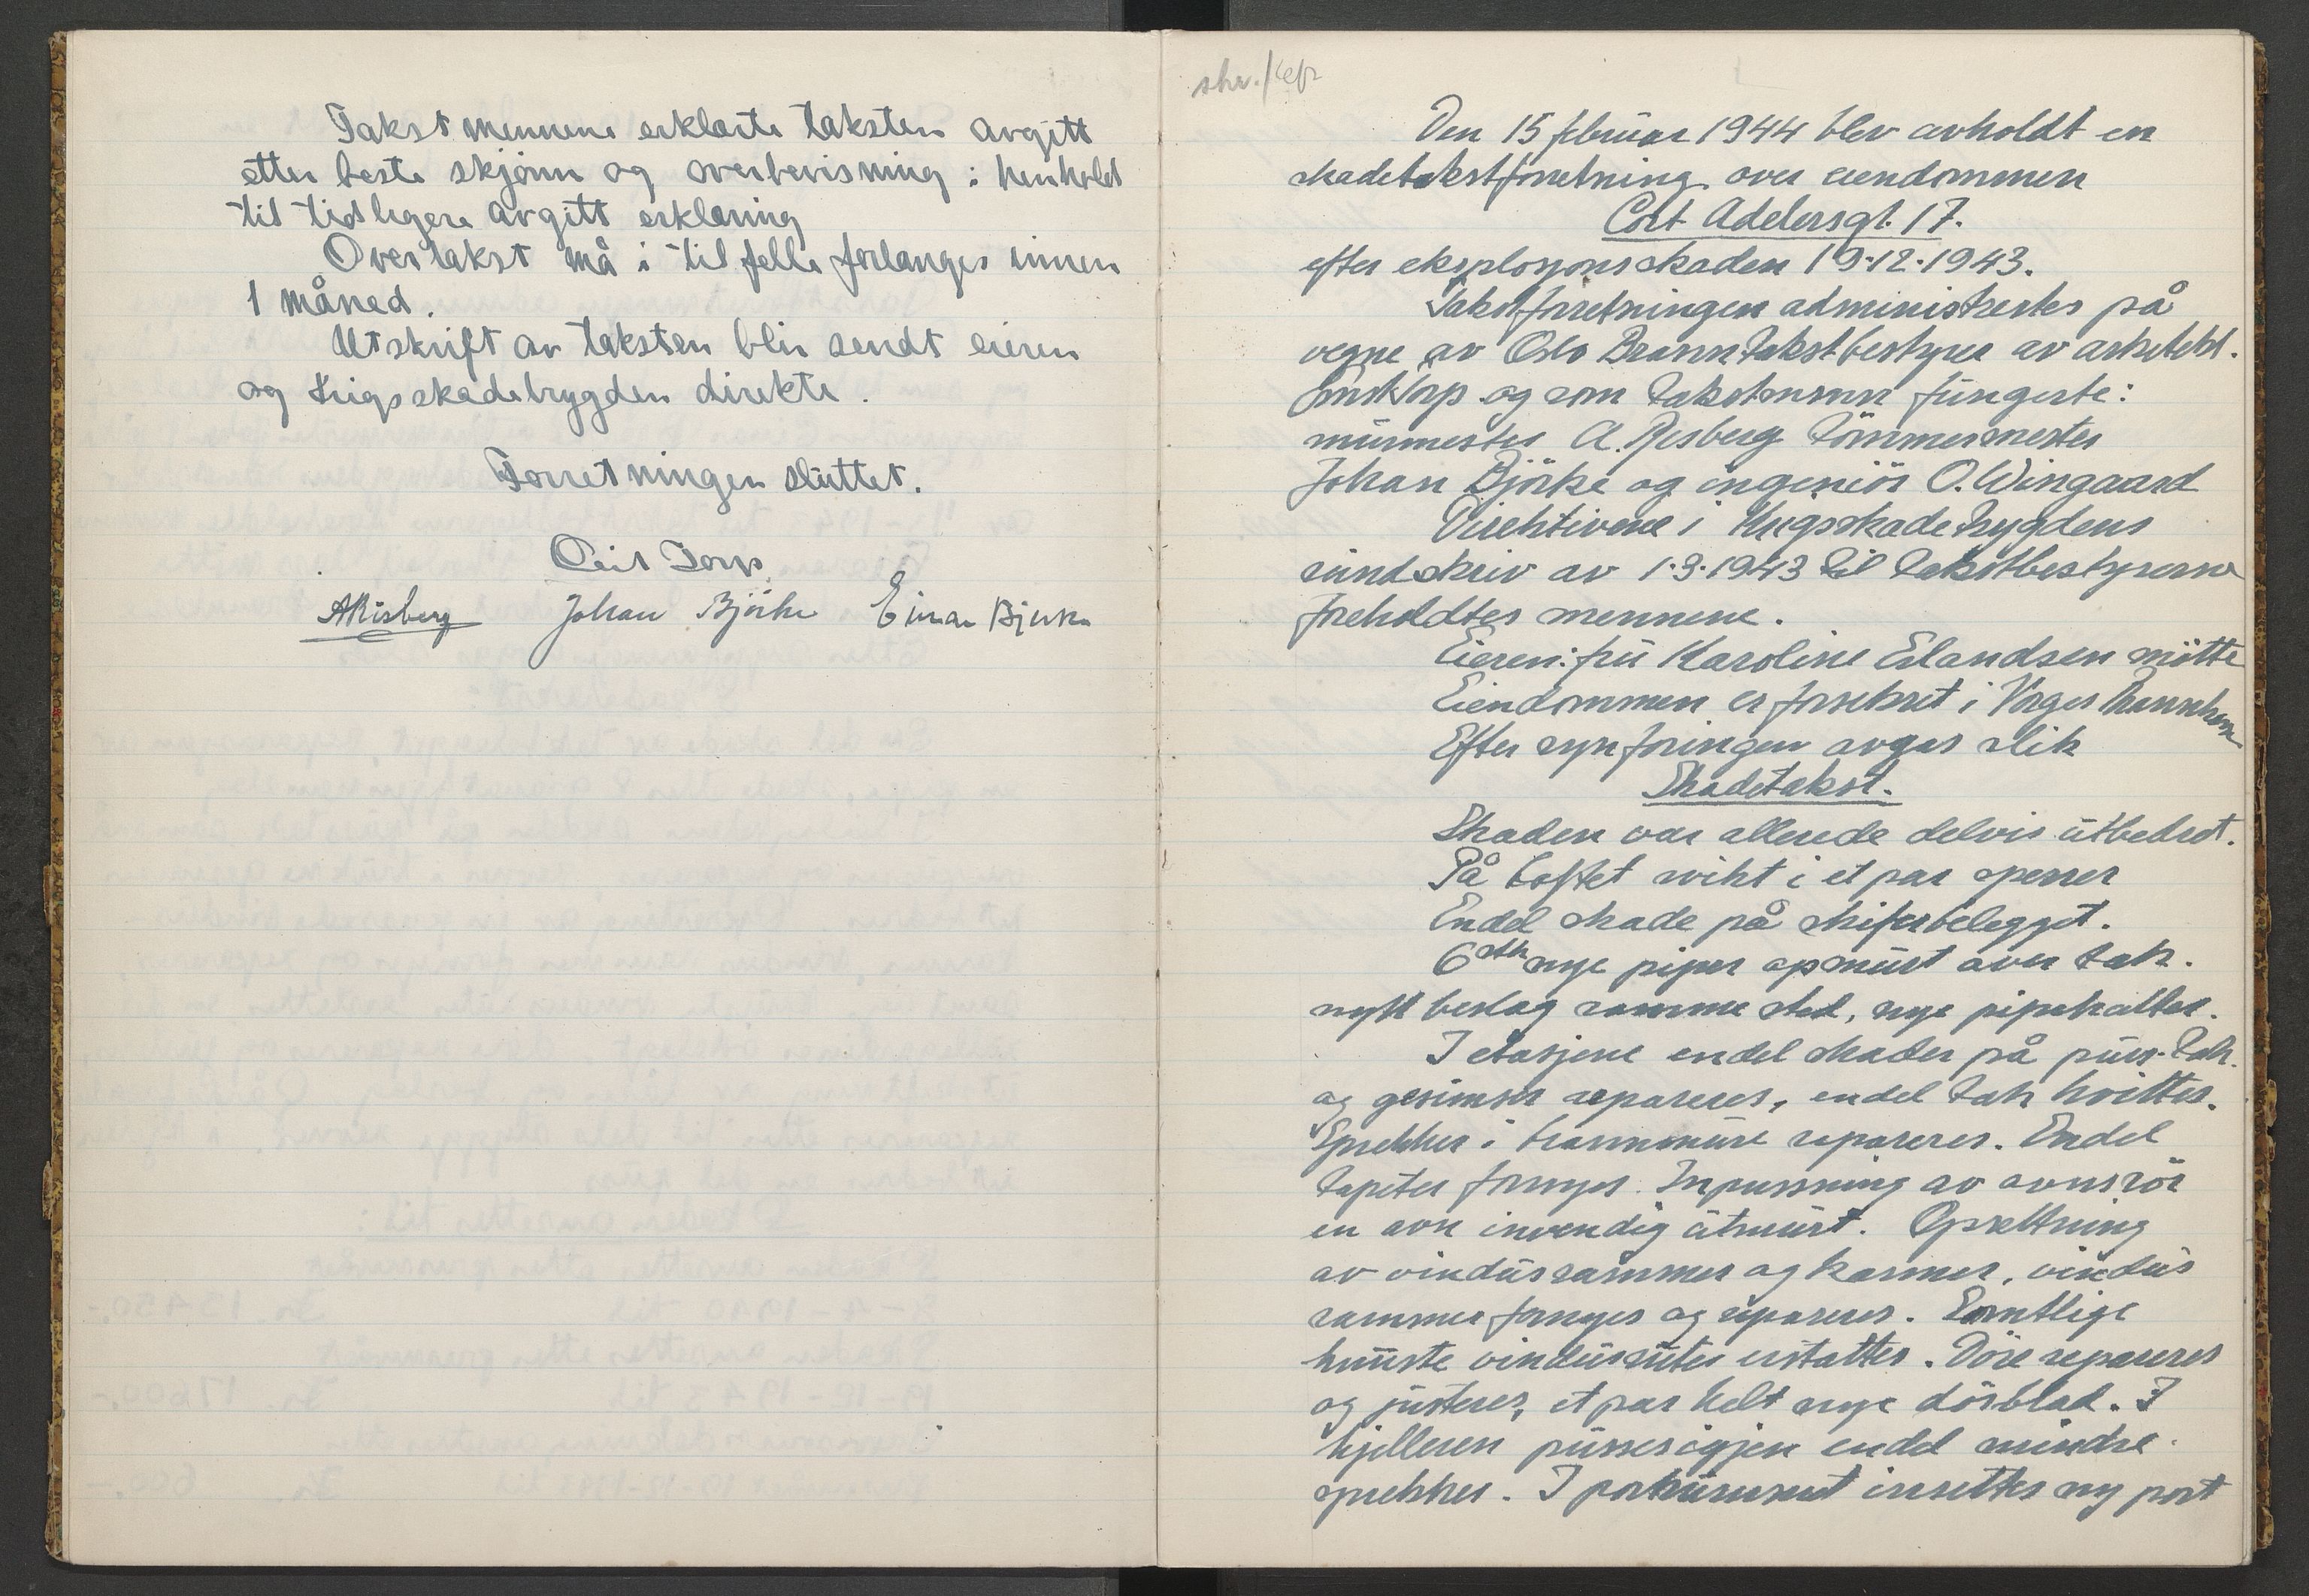 Takstmennene erklærte taksten avgitt
etter beste skjønn og overbevisning i henhold
til tidligere avgitt erklæring
Overtakst må i tilfelle forlanges innen
1 måned.
Utskrift av taksten blir sendt eieren
og Krigsskadetrygden direkte.
Forretningen sluttet.
ARisberg Johan Björke Einar Bjerke
skr./
Den 15 februar 1944 blev avholdt en
skadetakstforretning over eiendommen
Cort Adelersgt. 17.
efter eksplosjonsskaden 19.12.1943.
Takstforretningen administrertes på
vegne av Oslo Branntakstbestyrer av arkitekt.
og som takstmenn fungerte:
murmester A. Risberg tömmermester
Johan Björke og ingeniör O. Wingaard
Direktivene i Krigsskadetrygdens
rundskriv av 1.9.1943 til takstbestyrerne
foreholdtes mennene.
Eieren: fru Karoline Erlandsen mötte
Eiendommen er forsikret i Norges Brannkasse
Efter synfaringen avgas slik
Skadetakst.
Skaden var allerede delvis utbedret.
På loftet svikt i et par sperrer
Endel skade på skiferbelegget.
6 stk nye piper opmurt over tak.
nytt beslag samme sted, nye pipehatter.
I etasjene endel skader på puss. Tak.
og gesimser repareres, endel tak hvittes.
Sprekker i brannmure repareres. Endel
tapeter fornyes. Inpussning av ovnsrör
en ovn invendig utmurt. Opretning
av vindusrammer og karmer, vindus
rammer fornyes og repareres. Samtlige
knuste vindusruter erstattes. Döre repareres
og justeres, et par helt nye dörblad. I
kjelleren pusses igjen endel mindre
sprekker. I portrummet insettes ny port